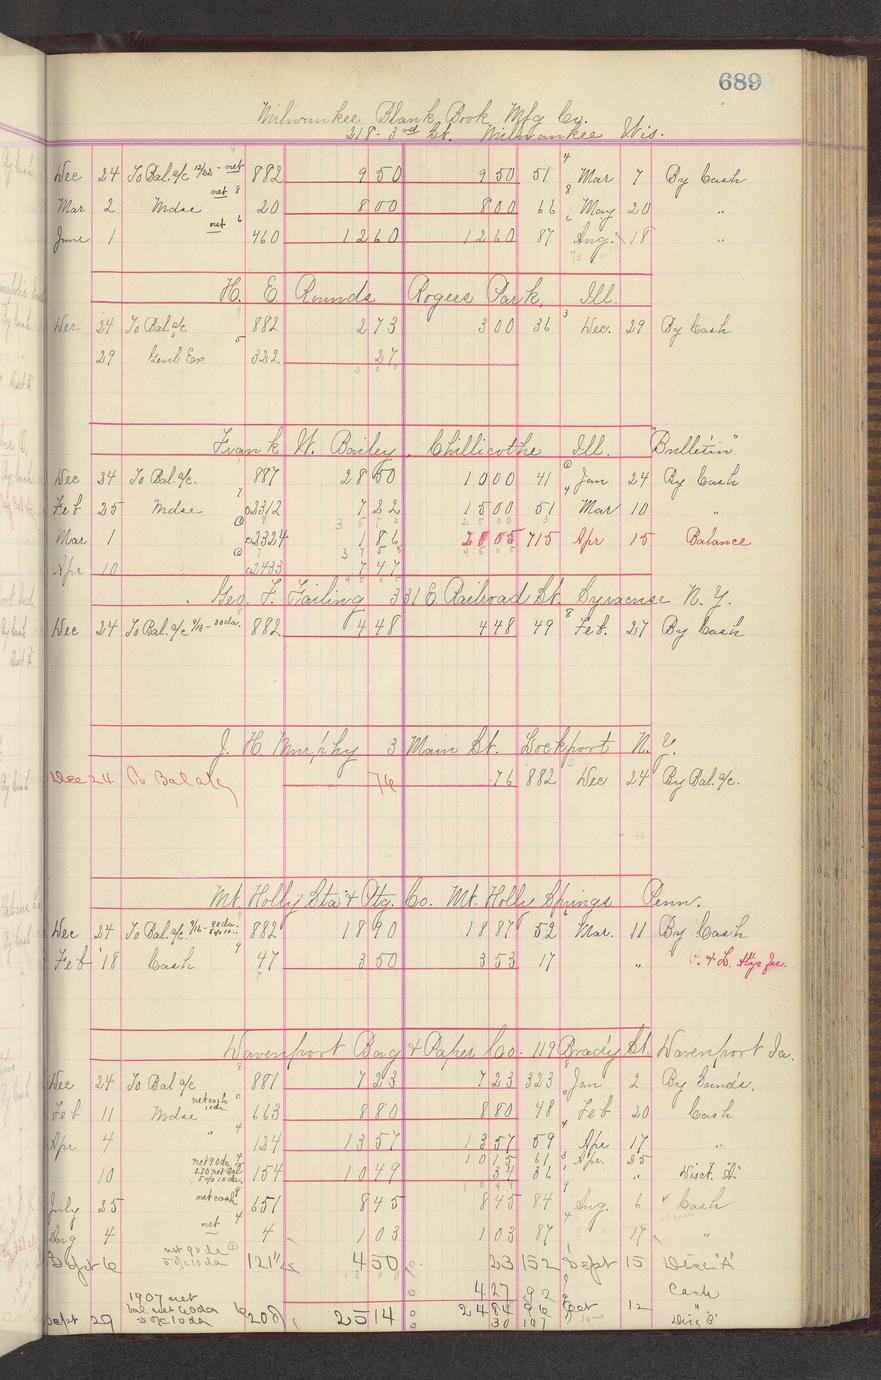 689
Milwaukee Blank Book Mfg Co.
218- 3rd St. Milwaukee Wis.
Dec 24 To Bal. a/c net 882 9 50 9 50 51 Mar 7 By Cash
Mar 2 Mdse net 20 8 00 8 00 66 May 20 "
June 1 net 460 12 60 12 60 87 Aug. 18 "
H. E. Rounds Rogers Park, Ill.
Dec 24 To Bal. a/c 882 2 73 3 00 36 Dec. 29 By Cash
29 Genl Ex 322 27
Frank W. Bailey, Chillicothe Ill. "Bulletin"
Dec 24 To Bal. a/c. 887 28 50 10 00 41 Jan 24 By Cash
Feb 25 Mdse 2312 7 22 15 00 51 Mar 10 "
Mar 1 2324 1 86 20 05 715 Apr 15 Balance
Apr 10 2433 7 47
Geo. F. Failing 331 E Railroad St. Syracuse N. Y.
Dec 24 To Bal. a/c 882 4 48 4 48 49 Feb. 27 By Cash
J. H. Murphy 3 Main St. Lockport N. Y.
Dec 24 To Bal a/c 76 76 882 Dec 24 By Bal. a/c.
Mt. Holly Sta & Ptg. Co. Mt. Holly Springs Penn.
Dec 24 To Bal. a/c. 9/16 - 30 da. 882 18 90 18 87 52 Mar. 11 By Cash
Feb 18 Cash 47 3 50 3 53 17 "
Davenport Bag & Paper Co. 119 Brady St. Davenport Ia.
Dec 24 To Bal a/c 881 7 23 7 23 323 Jan 2 By Sunds.
Feb 11 Mdse net cash 10 da. 663 8 80 8 80 48 Feb 20 Cash
Apr 4 " 124 13 57 13 57 59 Apr 17 "
10 15 61 Apr. 25
10 net 90 da 5% 10 da. 154 10 49 34 36 " Disct. "A"
July 25 net cash 651 8 45 8 45 84 Aug. 6 Cash
Aug 4 net 4 1 03 1 03 87 17 "
Sept 6 net 90 da 5% 10 da 121½ 4 50 23 152 Sept 15 Disc "A"
4 27 92 Cash
1907 net
Sept 29 bal net 60 da 5% 10 da 208 25 14 24 84 96 Oct 12 "
30 107 Disc "B"